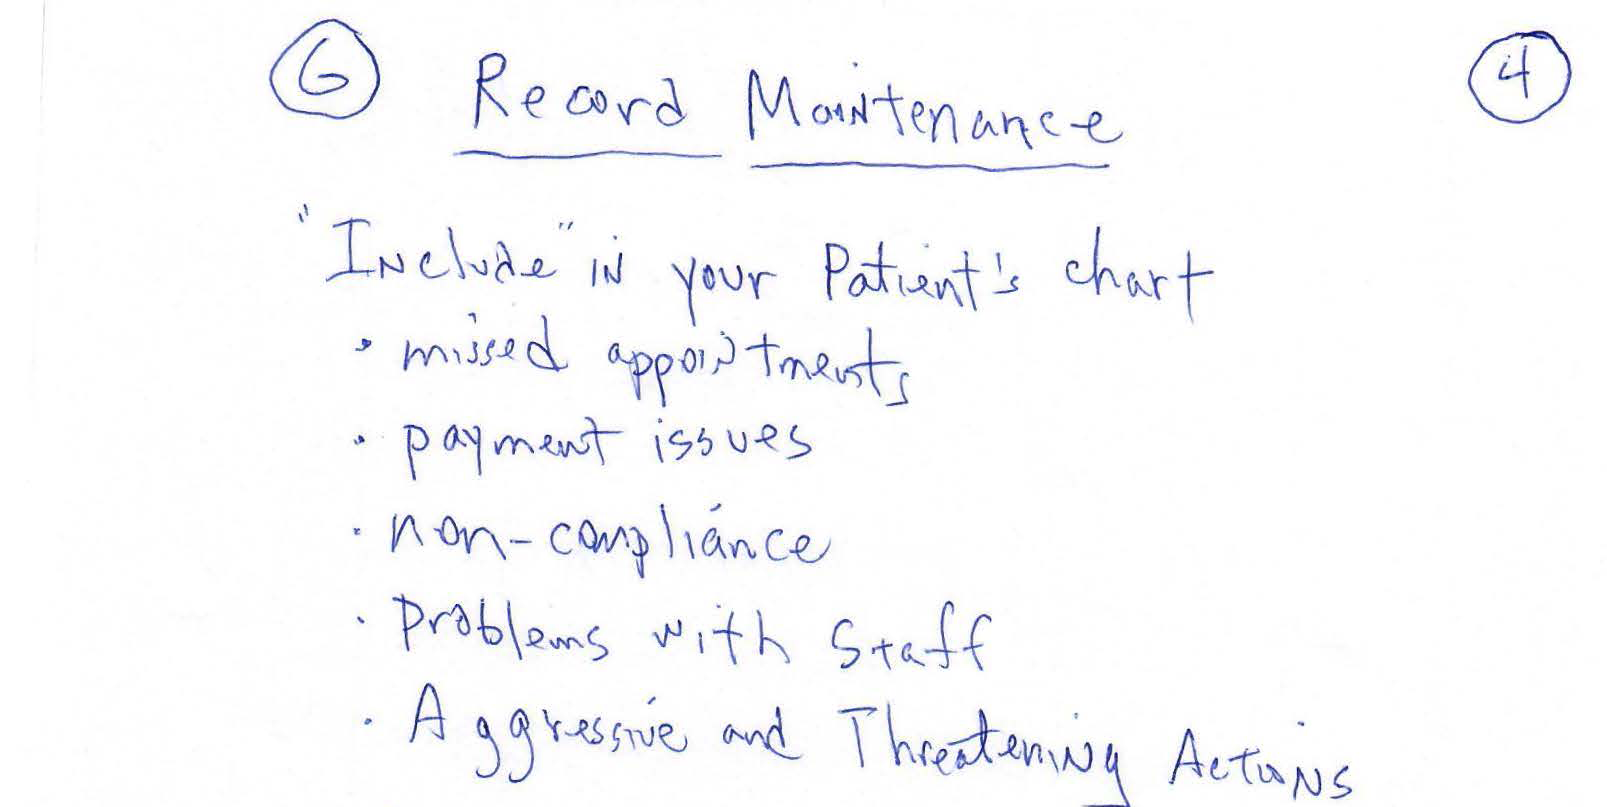 6 Record Maintenance 4
"Include" in your Patient's chart
• missed appointments
• payment issues
• non-compliance
• Problems with Staff
• Aggressive and Threatening Actions